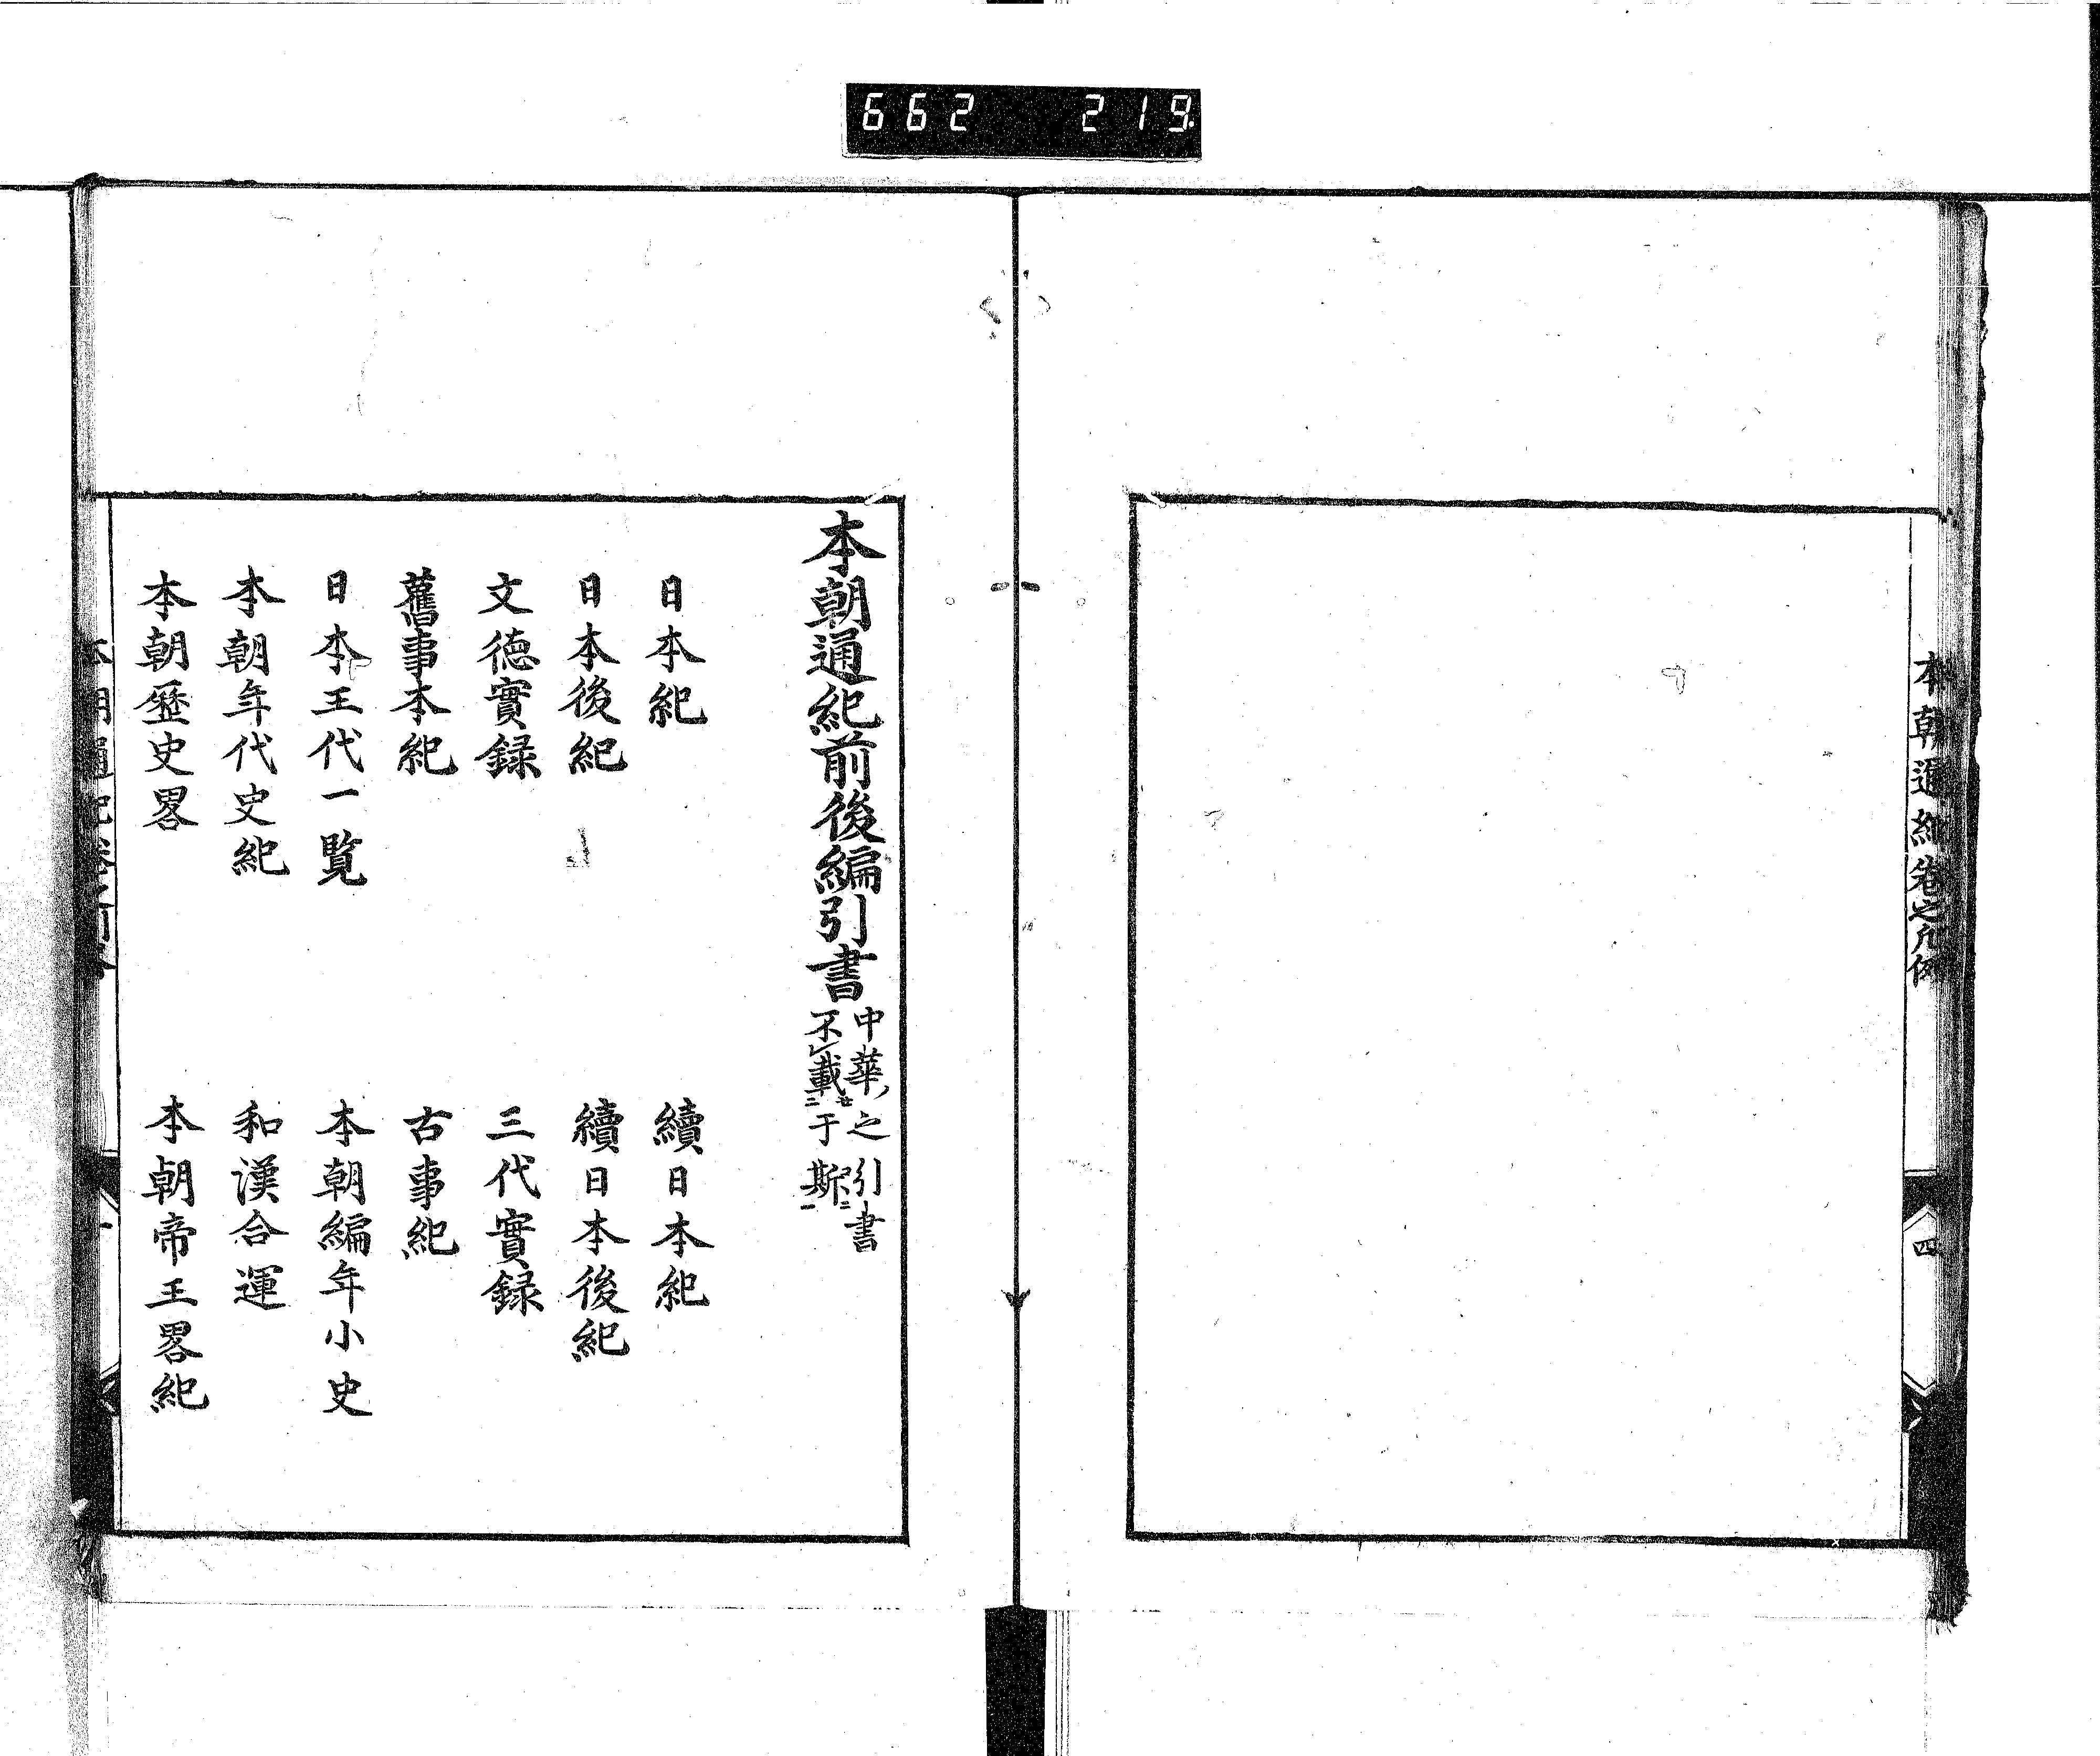 662 219
本朝通紀卷之凡例
四
本朝通紀前後編引書
中華之引書
不載于斯
日本紀
續日本紀
日本後紀
續日本後紀
文德實録
三代實録
舊事本紀
古事紀
日本王代一覧
本朝編年小史
本朝年代史紀
和漢合運
本朝歷史畧
本朝帝王畧紀